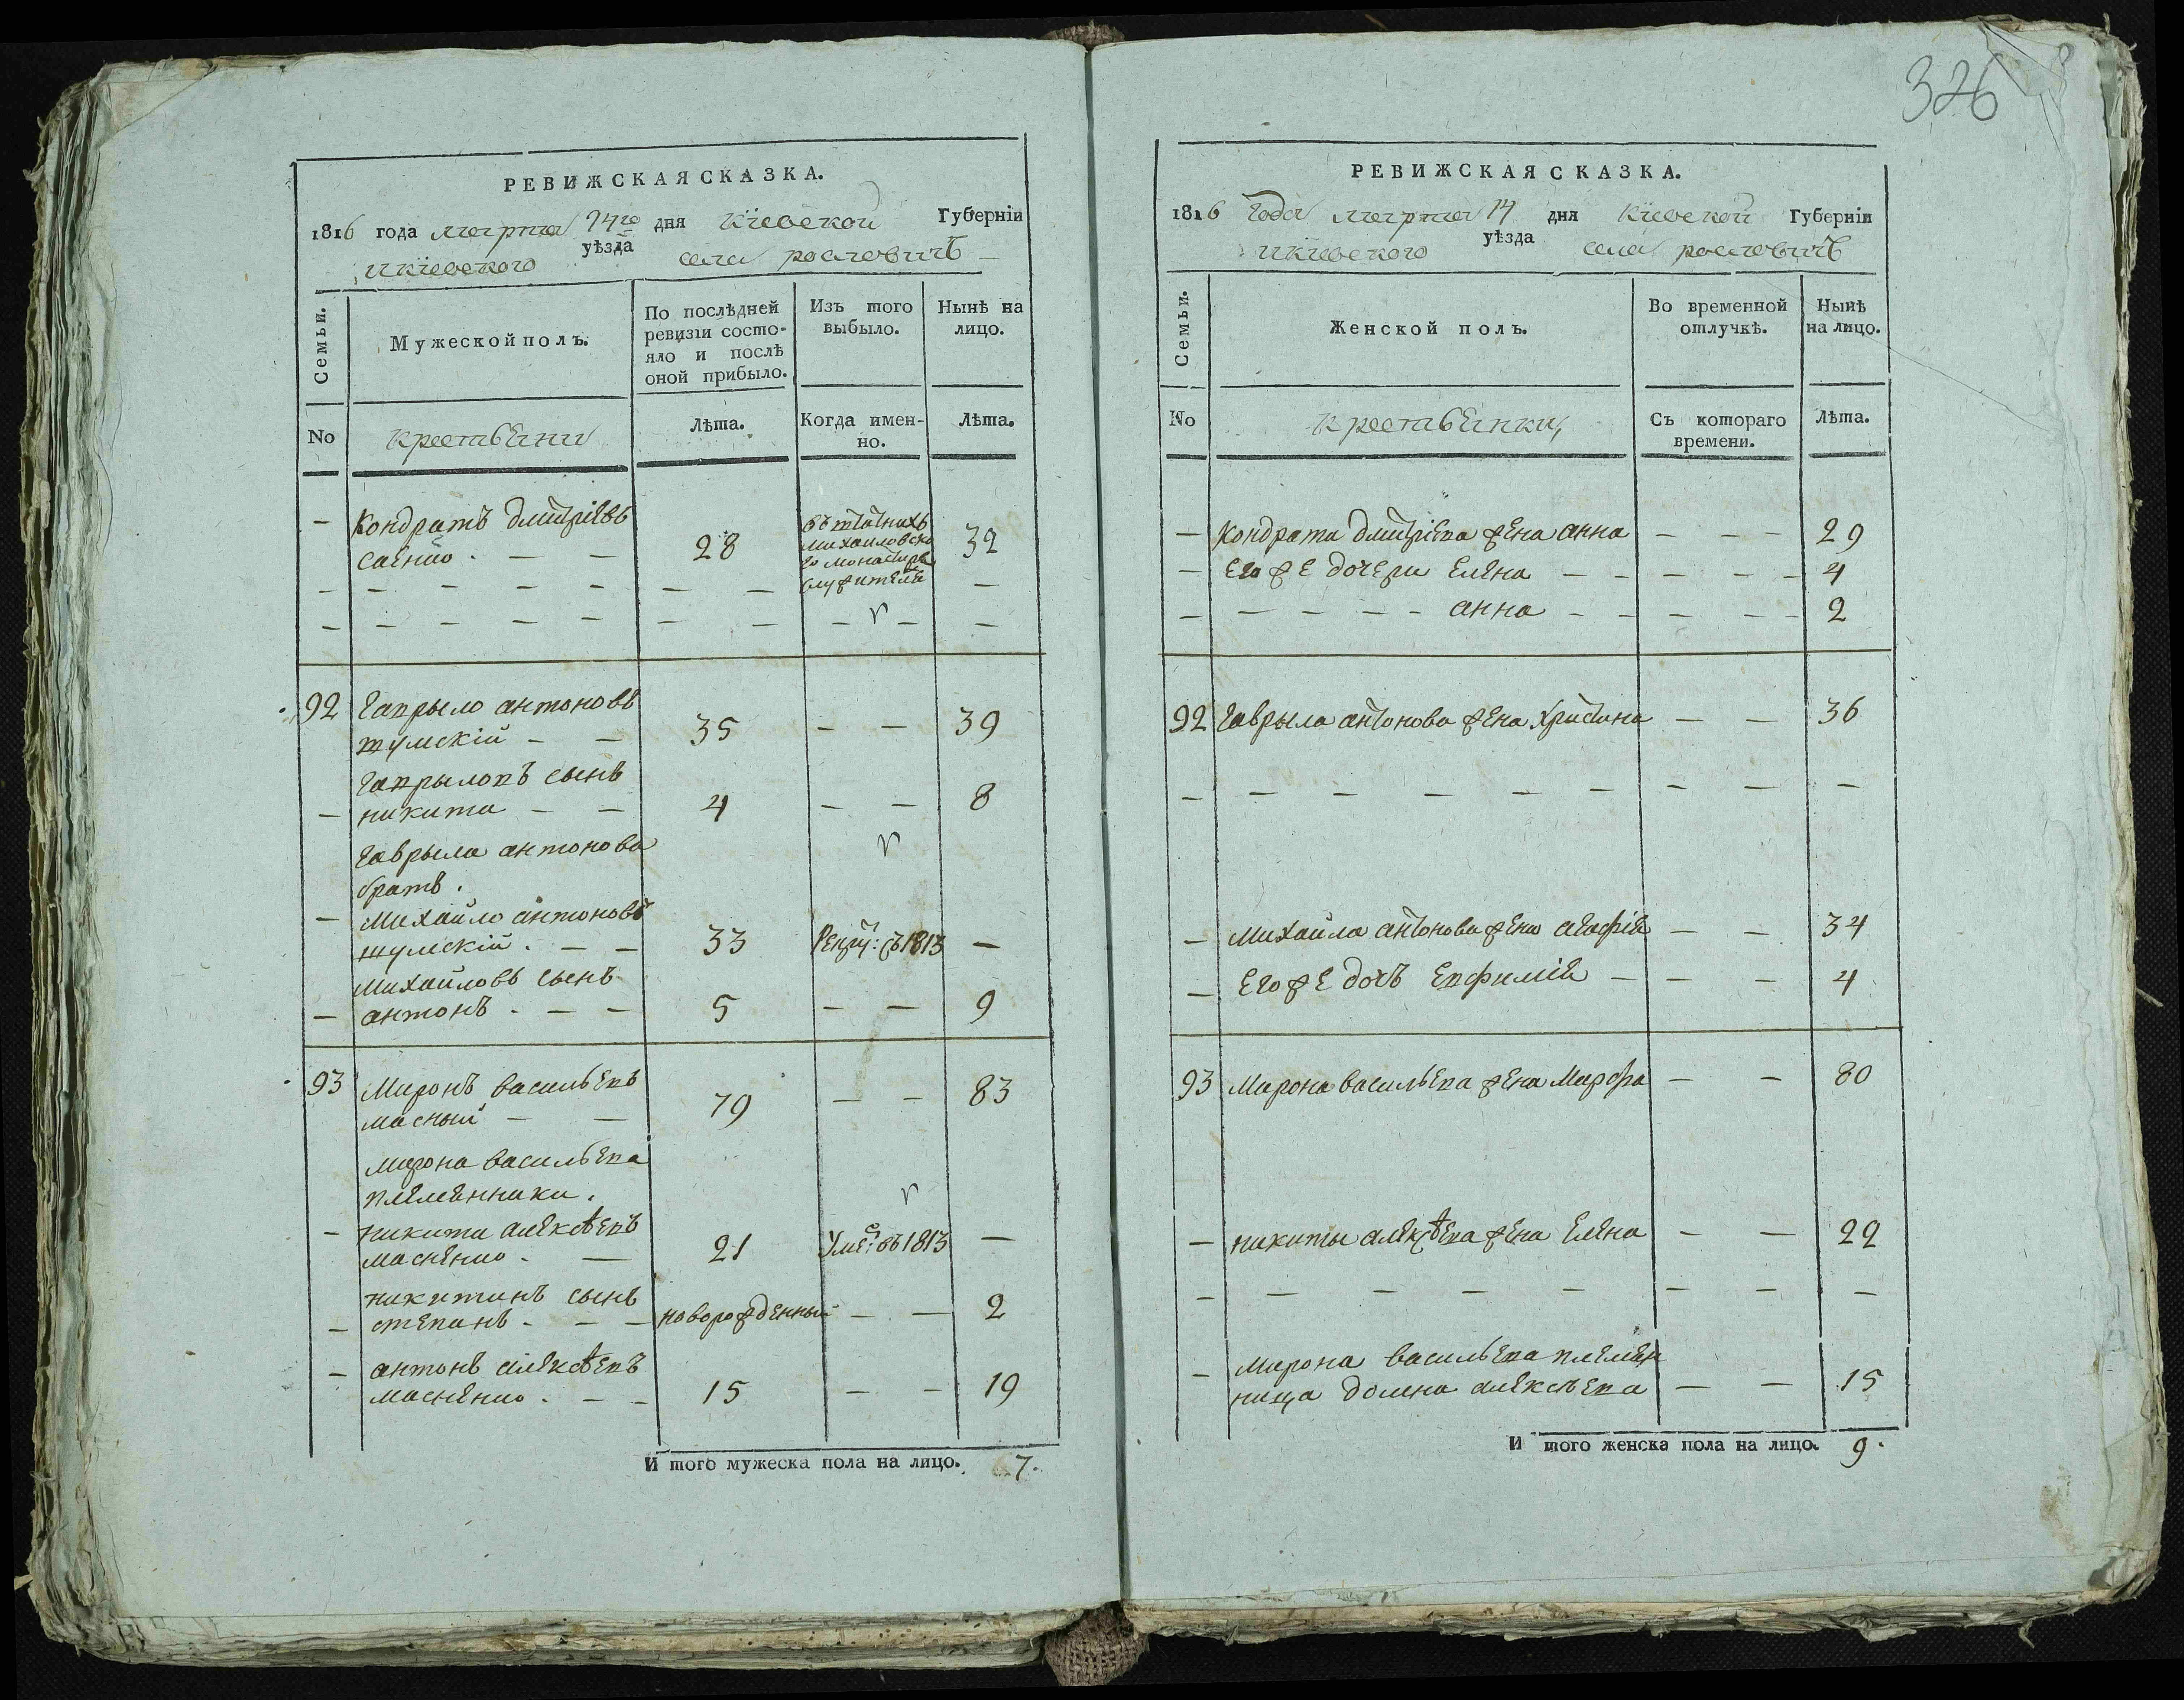 326
РЕВИЖСКАЯ СКАЗКА.
1816 года марта 14го дня Кіевской Губерніи
икіевского уѣзда села рословичъ
Семьи.
Мужеской полъ.
По послѣдней ревизіи состо-
яло и послѣ оной прибыло.
Изъ того выбыло.
Нынѣ на лицо.
No
крестьяни
Лѣта.
Когда имен-
но.
Лѣта.
– Кондратъ дмитріевъ
саенко. – – 28 32
въ штатнихъ
михаиловско
го монастиря
служителя
92 Гаврыло антоновъ
шумскій – – 35 – – 39
Гаврыловъ сынъ
– никита – – 4 – – 8
Гаврыла антонова
братъ.
– Михайло антоновъ
шумскій. – – 33 Рекру: въ 1813 –
Михайловъ сынъ
– антонъ. – – 5 – – 9
93 Миронъ васильевъ
масный – – 79 – – 83
мирона васильева
племянники.
– никита алексѣевъ
масненко. – 21 Уме: въ 1813 –
никитинъ сынъ
– степанъ. – – новорожденный – – 2
– антонъ алексѣевъ
масненко. – – 15 – – 19
И того мужеска пола на лицо. 7.
РЕВИЖСКАЯ СКАЗКА.
1816 года марта 14 дня Кіевской Губерніи
икіевского уѣзда села рословичъ
Семьи.
Женской полъ.
Во временной отлучкѣ.
Нынѣ на лицо.
No
крестьянки
Съ котораго времени.
Лѣта.
– Кондрата дмитріева жена анна – – – 29
– Его же дочери Елена – – – – – 4
– – – – – анна – – – – – 2
92 Гаврыла антонова жена Христина – – 36
– Михайла антонова жена агафія – – 34
– Его же дочъ Евфимія – – – 4
93 Мирона васильева жена Марфа – – 80
– никиты алексѣева жена Елена – – 22
– Мирона васильева племян
ница домна алексѣева – – 15
И того женска пола на лицо. 9.